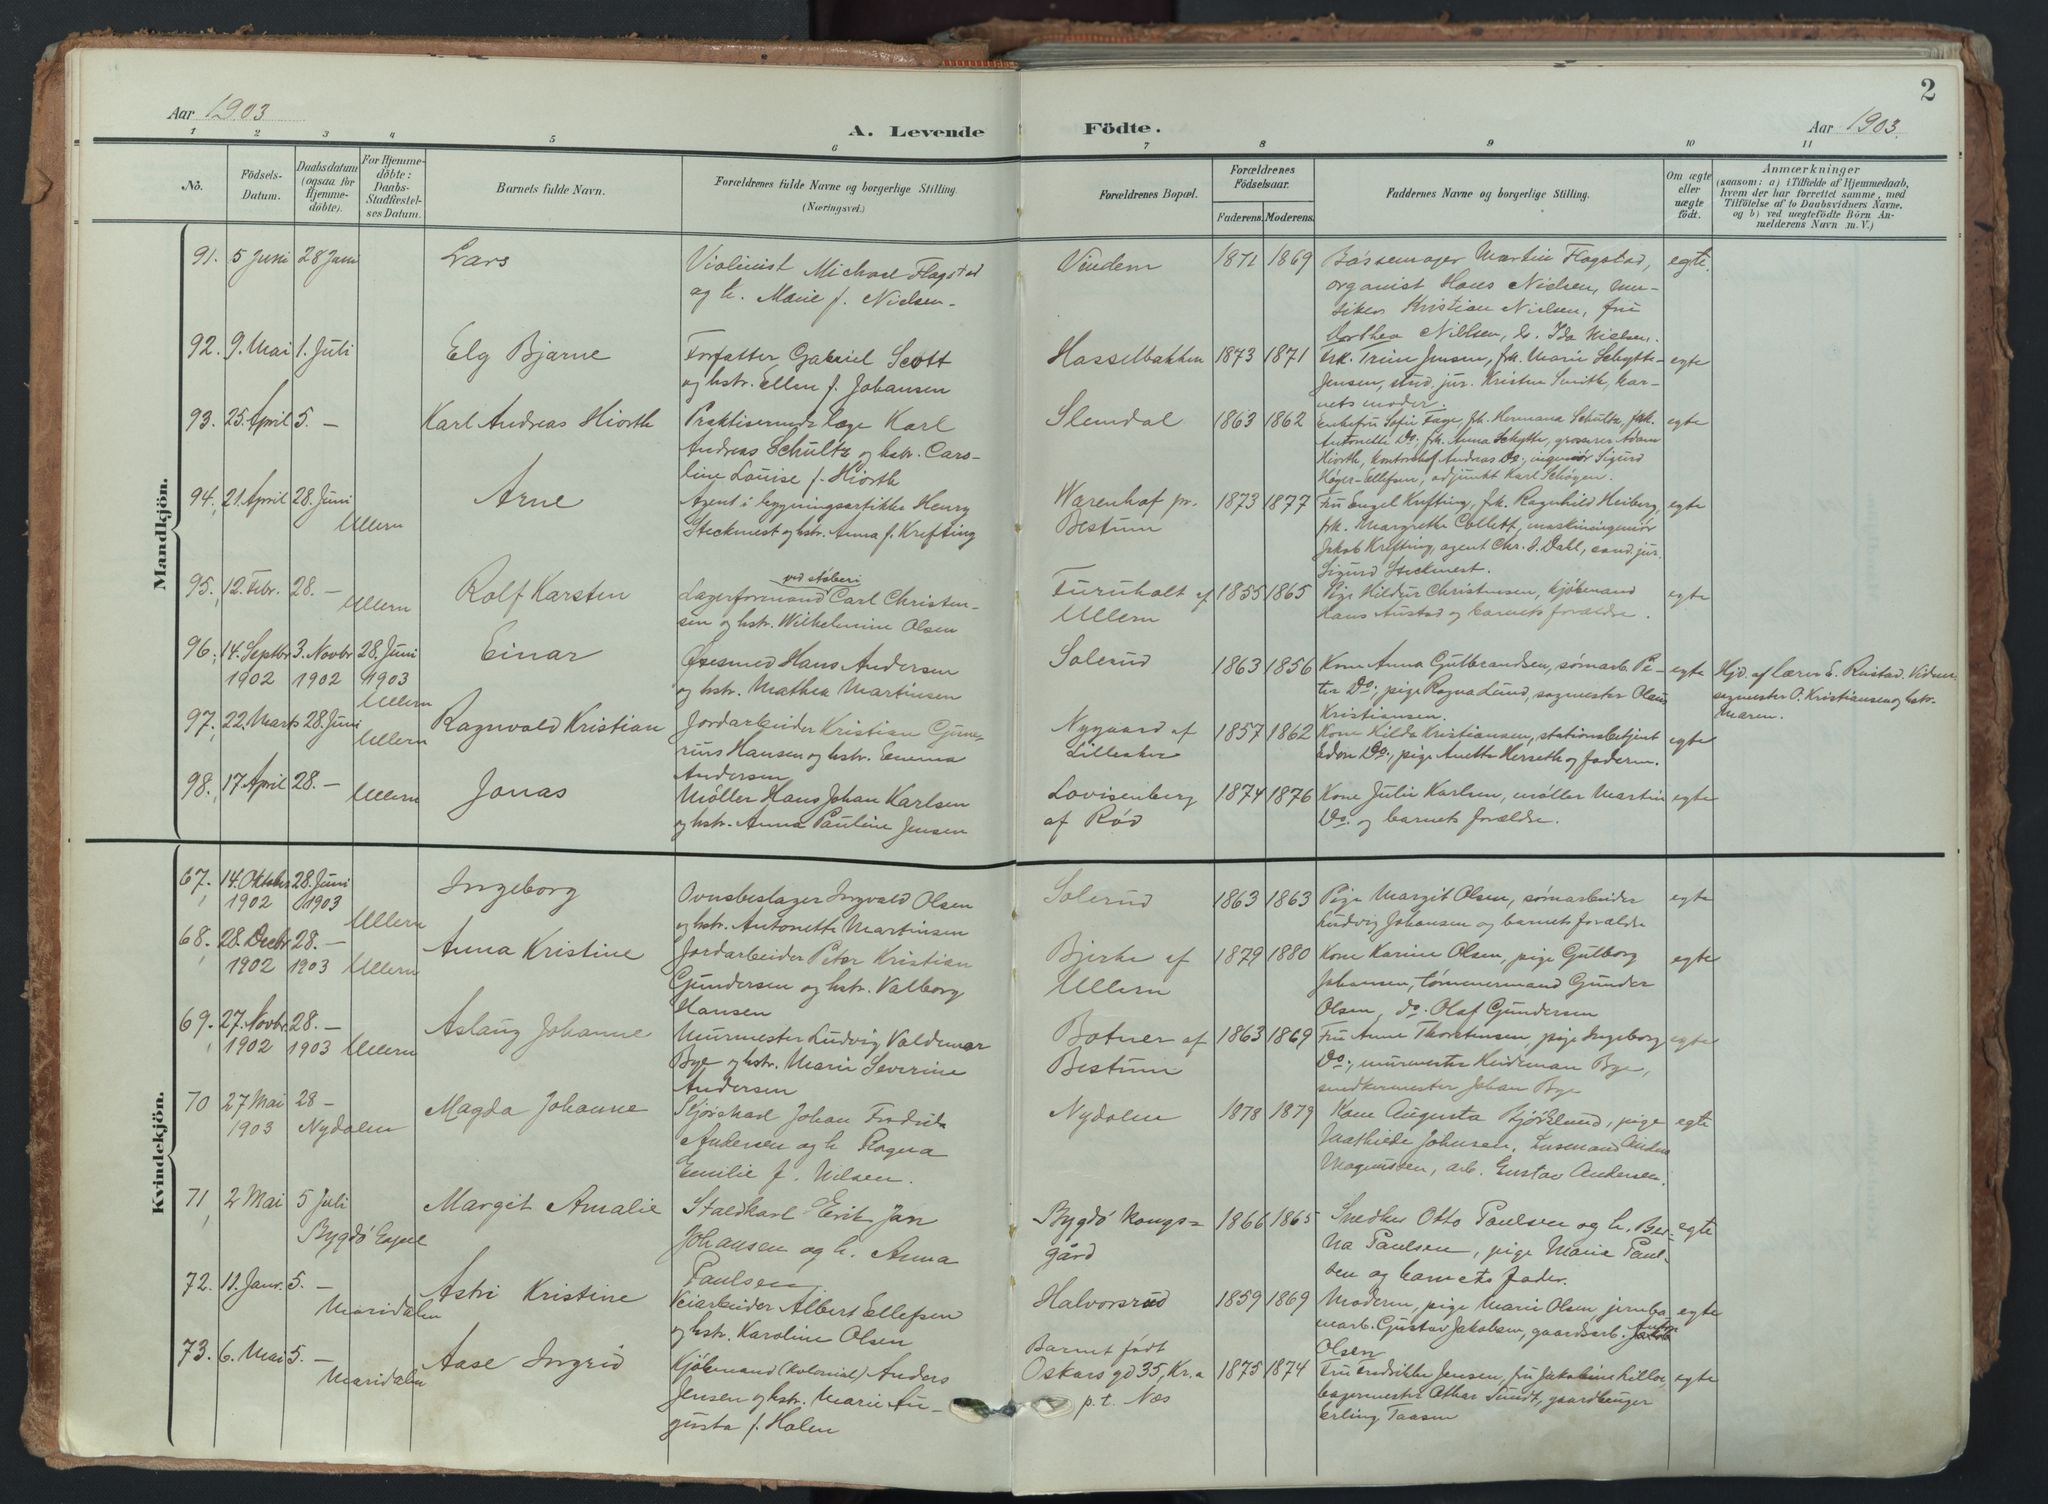 2
Aar 1903
A. Levende Födte.
Aar 1903.
1 2 3 4 5 6 7 8 9 10 11
Nö.
Födsels-Datum.
Daabsdatum (ogsaa for Hjemme-döbte).
For Hjemme-döbte: Daabs-Stadfæstel-ses Datum.
Barnets fulde Navn.
Forældrenes fulde Navne og borgerlige Stilling (Næringsvei.)
Forældrenes Bopæl.
Forældrenes Födselsaar.
Faderens. Moderens.
Faddernes Navne og borgerlige Stilling.
Om ægte eller uægte födt.
Anmærkninger
(saasom: a) i Tilfælde af Hjemmedaab,
hvem der har forrettet samme, med
Tilföielse af to Daabsvidners Navne,
og b) ved uægtefödte Börn An-
melderens Navn m. V.)
Mandkjön.
91. 5 Juni 28 Juni Lars Violinist Michael Flagstad Vindern 1871 1869 Martin Flagstad, egte.
og h. Marie f. Nielsen
organist Hans Nielsen, mu-
siker Kristian Nielsen, fru
Dorthea Nielsen, h. Ida Nielsen.
92. 9. Mai 1. Juli Elg Bjarne Forfatter Gabriel Scott Hasselbakken 1873 1871 Frk. Trine Jensen, frk. Marie Schytte- egte
og hstr. Ellen f. Johansen
Jensen, stud. jur. Kristen Smith, bar-
nets moder.
93. 25. April 5. — Karl Andreas Hiorth Praktiserende læge Karl Slemdal 1863 1862 Enkefru Sofie Fage, frk. Hermana Schultz, frk. egte
Andreas Schultz og hstr. Caro-
line Louise f. Hiorth
Antonette Do, frk. Anna Schytte, grosserer Adam
Hiorth, kontorchef Andreas Do, ingeniør Sigurd
Høyer-Ellefsen, adjunkt Karl
94. 21. April 28. Juni Ullern Arne Agent i bygningsartikler Henry Værenhof pr. Bestum 1873 1877 Fru Engel Krefting, frk. Ragnhild Heiberg, egte
Steckmest og hstr. Anna f. Krefting
frk. Margrethe Collett, maskiningeniør
Jakob Krefting, agent Chr. J. Dahl, cand. jur.
Sigurd Steckmest.
95. 12. Febr. 28. — Ullern Rolf Karsten Lagerformand ved støberi Carl Christen- Furuholt af Ullern 1855 1865 Pige Hildur Christensen, kjøbmand egte
sen og hstr. Wilhelmine Olsen
Hans Austad og barnets forældre.
96. 14. Septbr 1902 3. Novbr 1902 28. Juni 1903 Ullern Einar Øxesmed Hans Andersen Solerud 1863 1856 Kone Anna Gulbrandsen, sømarb. Pe- egte Hjd. af lærer E. Rustad. Vidner
og hstr. Mathea Martinsen
ter Do, pige Ragna Lund, sagmester Olaus
Kristiansen.
sagmester O. Kristiansen og hstr.
Maren.
97. 22. Marts 28 Juni Ullern Ragnvald Kristian Jordarbeider Kristian Gune- Nygaard af Lilleaker 1857 1862 Kone Hilda Kristiansen, stationsbetjent egte
rius Hansen og hstr. Emma
Andersen
Edon Do, pige Anette Herseth og faderen.
98. 17 April 28. — Ullern Jonas Møller Hans Johan Karlsen Lovisenberg af Rød 1874 1876 Kone Julie Karlsen, møller Martin egte
og hstr. Anna Pauline Jensen
Do. og barnets forældre.
Kvindekjön.
67. 14. Oktober 1902 28. Juni 1903 Ullern Ingeborg Ovnsbeslager Ingvald Olsen Solerud 1863 1863 Pige Margit Olsen, sømarbeider egte
og hstr. Antonette Martinsen
Ludvig Johansen og barnets forældre
68. 28. Decbr 1902 28. — 1903 Ullern Anna Kristine Jordarbeider Peter Kristian Bjerke af Ullern 1879 1880 Kone Karine Olsen, pige Gulborg egte
Gundersen og hstr. Valborg
Hansen
Johansen, tømmermand Gunder
Olsen, do. Olaf Gundersen
69. 27. Novbr. 1902 28. — 1903 Ullern Aslaug Johanne Murmester Ludvig Valdemar Botner af Bestum 1863 1869 Fru Anne Thorstensen, pige Ingeborg egte
Bye og hstr. Marie Severine
Andersen
Do, murmester Bye,
snedkermester Johan Bye
70 27 Mai 1903 28 — Nydalen Magda Johanne Johan Fredrik Nydalen 1878 1879 Kone Augusta Bjørklund, pige egte
Andersen og h. Ragna
Emilie f. Nilsen.
Mathilde Johnsen, Anders
Magnussen, arb. Gustav Andersen.
71, 2 Mai 5 Juli Bygdö Margit Amalie Staldkarl Erik Jan Bygdö kongs-gård 1866 1865 Snedker Otto Paulsen og h. Ber- egte
Johansen og h. Anna
Paulsen
na Paulsen, pige Marie Paul-
sen og barnets fader.
72. 11. Janr. 5. — Maridalen Astri Kristine Veiarbeider Albert Ellefsen Halvorsrud 1859 1869 Moderen, pige Marie Olsen jernba egte
og hstr. Karoline Olsen
narb. Gustav Jakobsen, gaardsarb. Anton
Olsen
73. 6. Mai 5. — Maridalen Aase Ingrid Kjøbmand (kolonial) Anders Barnet født Oskars gd 35, Kr.a p.t. Næs 1875 1874 Fru Fredrikke Jensen, fru Jakobine Lilloe, egte
Jensen og hstr. Marie Au-
gusta f. Holen
bagermester Othar Sundt, gaardbruger
Erling Taasen